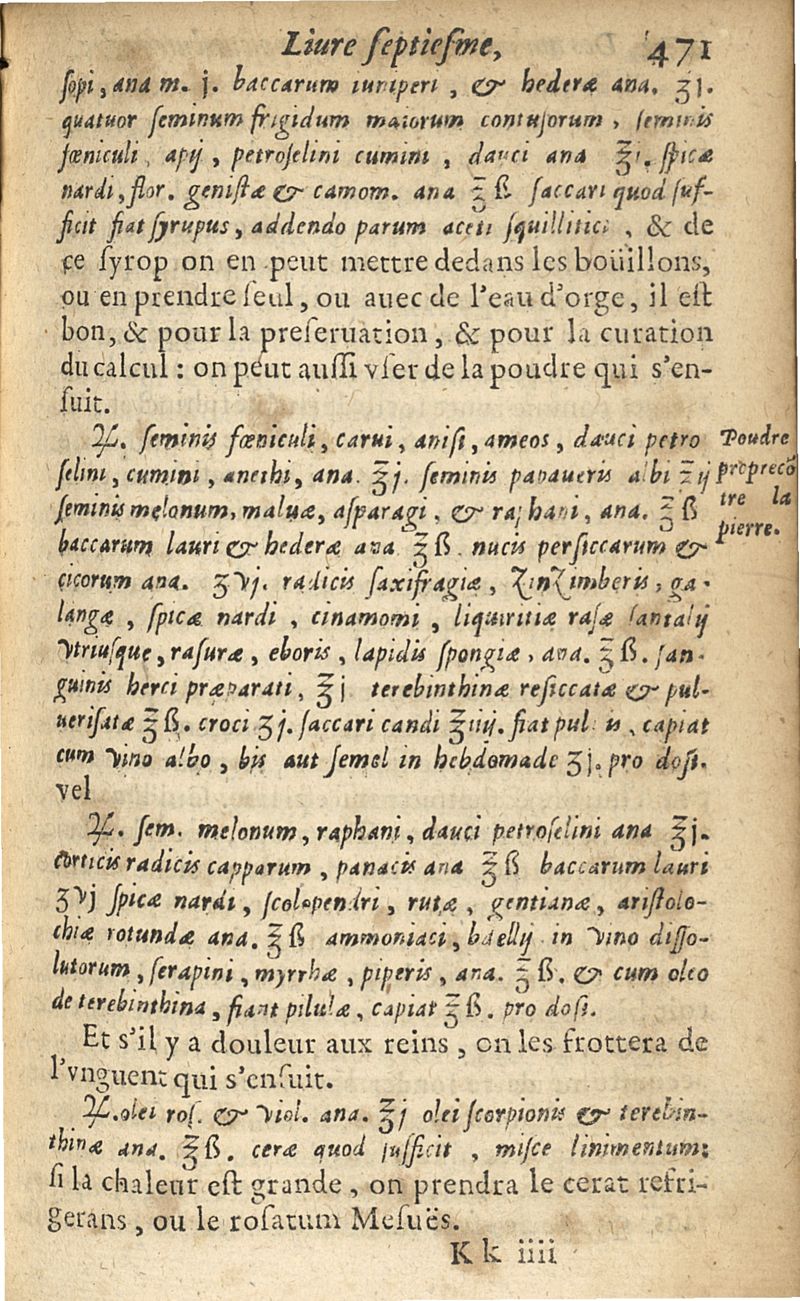 Liure septiesme, 471
sopi, ana m. j. baccarum iuniperi, & hederæ ana. ʒj.
quatuor seminum frigidum maiorum contusorum, seminis
fœniculi, apij, petroselini cumini, dauci ana ℥j. spicæ
nardi, flor. genistæ & camom. ana ℥ß saccari quod suf-
ficit fiat syrupus, addendo parum aceti squillitici, & de
ce syrop on en peut mettre dedans les boüillons,
ou en prendre seul, ou auec de l'eau d'orge, il est
bon, & pour la preseruation, & pour la curation
du calcul : on peut aussi vser de la poudre qui s'en-
suit.
♃. seminis fœniculi, carui, anisi, ameos, dauci petro
selini, cumini, anethi, ana. ℥j. seminis papaueris albi ℥ij
seminis melonum, maluæ, asparagi, & raphani, ana. ℥ß
baccarum lauri & hederæ ana ℥ß. nucis persiccarum &
cicorum ana. ʒvj. radicis saxifragiæ, ZinZimberis, ga-
langæ, spicæ nardi, cinamomi, liquiritiæ rasæ santalij
vtriusque, rasuræ, eboris, lapidis spongiæ, ana. ℥ß. san-
guinis herci præparati, ℥j terebinthinæ resiccatæ & pul-
uerisatæ ℥ß. croci ʒj. saccari candi ℥iiij. fiat puluis, capiat
cum vino albo, bis aut semel in hebdomade ʒj. pro dosi.
vel
♃. sem. melonum, raphani, dauci petroselini ana ℥j.
corticis radicis capparum, panacis ana ℥ß baccarum lauri
ʒvj spicæ nardi, scolopendri, rutæ, gentianæ, aristolo-
chiæ rotundæ ana. ℥ß ammoniaci, bdellij in vino disso-
lutorum, serapini, myrrhæ, piperis, ana. ℥ß. & cum oleo
de terebinthina, fiant pilulæ, capiat ℥ß. pro dosi.
Et s'il y a douleur aux reins, on les frottera de
l'vnguent qui s'ensuit.
♃. olei ros. & viol. ana. ℥j olei scorpionis & terebin-
thinæ ana. ℥ß. ceræ quod sufficit, misce linimentum:
si la chaleur est grande, on prendra le cerat refri-
gerans, ou le rosatum Mesuës.
K k iiii
Poudre
propre cõ
tre la
pierre.